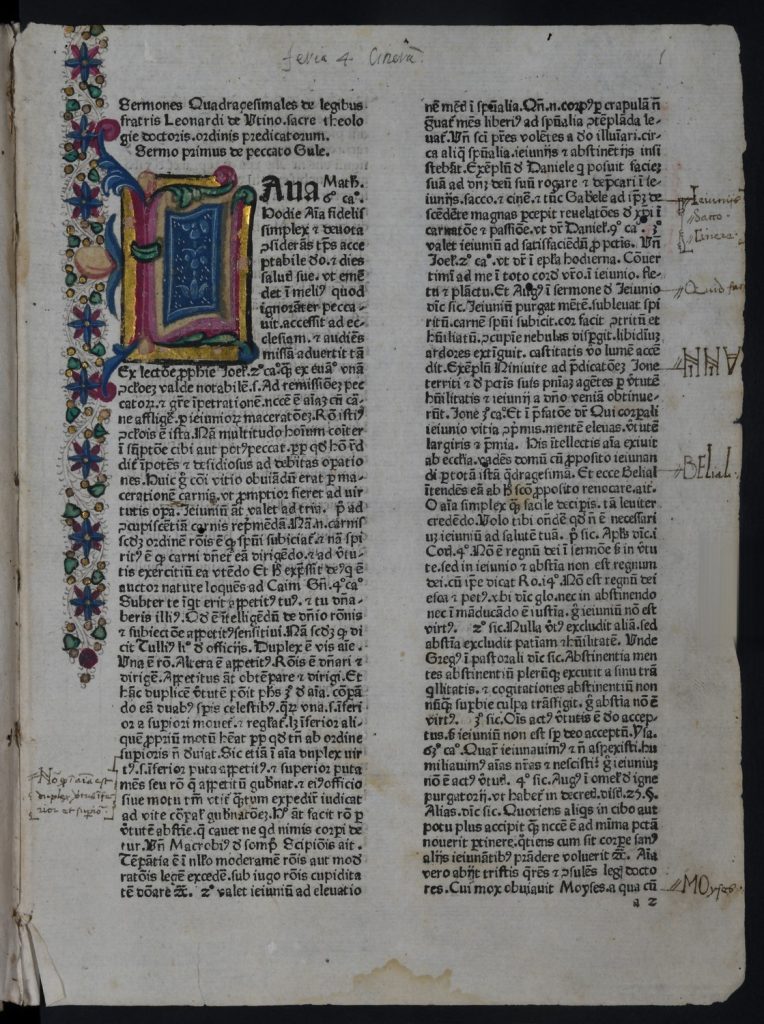 feria 4 Cineru᷒
1
Sermones Quadragesimales de legibus
fratris Leonardi de Vtino. sacre theolo
gie doctoris. ordinis predicatorum.
Sermo primus de peccato Gule.
Aua Math.
6° ca°.
Hodie Aīa fidelis
simplex & deuota
ꝯsiderās tp̄s acce
ptabile do. & dies
salutꝭ sue. vt emē
det ī meliꝰ quod
ignorāter pecca-
uit. accessit ad ec-
clesiam. & audiēs
missā aduertit tā
Ex lectōe ꝓphīe Joel. 2° ca° ꝙ̄ ex euā° vnā
ꝯcłoeꝫ valde notabilē. s. Ad remissiōeꝫ pec
catoꝝ. & grē īpetratiōnem. nccē ē aīaꝫ cū ca-
ne affligē. ꝑ ieiunioꝝ maceratōeꝫ. Rō istiꝰ
ꝯcłois ē ista. Nā multitudo hoīum cōiter
ī sūptōe cibi aut potꝰ peccat. ꝓp qd hō rd
dit̄ īpotēs & desidiosus ad debitas oꝑatio
nes. Huic g̊ cōi vitio obuiādū erat ꝑ ma-
cerationē carnis. vt ꝓmptior fieret ad vir
tutis oꝑa. Jeiuniū āt valet ad tria. p̄ ad
ꝯcupiscētiā carnis rep̄mēdā. Nā. n. carnis
scd̄ꝫ ordinē rōis ē ꝙ spūi subiciat̄. & nā spi
ritꝰ ē ꝙ carni dn̄et̄ eā dirigēdo. & ad v̄tu-
tis exercitiū ea vtēdo Et h̄ exp̄ssit deꝰ ꝙ ē
auctor nature loquēs ad Caim Gn̄. 4° ca°
Subter te īqt erit appetitꝰ tuꝰ. & tu dn̄a-
beris illi. Qd ē ītelligēdū de dn̄io rōnis
& subiectōe appetitꝰ sensitiui Nā scd̄ꝫ ꝙ di
cit Tulliꝰ li° d̄ officijs. Duplex ē vis aīe.
Vna ē rō. Altera ē appetitꝰ. Rōis ē dn̄ari &
dirigē. Appetitus āt obtēpare & dirigi. Et
hāc duplicē v̄tutē pōit phs 3° d̄ aīa. cōpā-
do eā duabꝰ spis celestibꝰ. qꝝ vna. s. īferi
or a supiori mouet̄. & reglat̄. Lꝫ īferior ali-
que ꝓpriū motū hēat ꝑp qd tn̄ ab ordine
supioris n̄ d̄uiat. Sic etiā ī aīa duplex vir
tꝰ. s. īferior puta appetitꝰ. & superior puta
mēs seu rō ꝙ appetitū gub̄nat. & eiꝰ officio
siue motu tm̄ vtit̄ q̄tum expedir̄ iudicat
ad vite cōꝑalꝭ gub̄natōeꝫ. Hꝰ āt facit rō ꝑ
v̄tutē abstīe. ꝙ cauet ne qd nimis corpi de
tur. Vn̄ Macrobiꝰ d̄ somp̄. Scipiōis ait.
Tēpātia ē ī nłło moderamē rōis aut mod̄
ratōis legē excedē. sub iugo rōis cupidita
tē dōare ꝛc. 2° valet ieiuniū ad eleuatio
nē mēd̄ ī spūalia. Qn̄. n. corpꝰ ꝑ crapulā n̄
gȗat̄ mēs liberiꝰ ad spūalia ꝯtēplāda le-
uat̄. Vn̄ sci p̄res volētes a do illuīari. cir-
ca aliq̄ spūalia. ieiunijs & abstinētijs insi
stebāt. Exēplū d̄ Daniele q posuit faciez
suā ad dn̄ꝫ deū suū rogare & dep̄cari ī ie-
iunijs. sacco. & cinē. & tūc Gabele ad ip̄ꝫ de
scēdēte magnas ꝑcepit reuelatōes d̄ xp̄i ī
carnatōe & passiōe. vt dr̄ Daniel. 9° ca°. 3°
valet ieiuniū ad satisfaciēdū ꝓ pctīs. Vn̄
Joel. 2° ca°. vt dr̄ ī ep̄la hodierna. Cōuer
timī ad me ī toto cord̄ vr̄o. ī ieiunio. fle-
tu & plāctu. Et Augꝰ ī sermone d̄ Jeiunio
dīc sic. Jeiuniū purgat mētē. subleuat spi
ritū. carnē spūi subicit. cor facit ꝯtritū et
hūiliatū. ꝯcupīe nebulas disꝑgit. libidinū
ardores extīguit. castitatis vo lumē accē
dit. Exēplū Niniuite ad p̄dicatōeꝫ Jone
territi & d̄ pctīs suis pnīaꝫ agētes ꝑ v̄tutē
hūilitatis & ieiunij a dn̄o veniā obtinue-
rūt. Jone 3° ca°. Et ī p̄fatōe dr̄ Qui corꝑali
ieiunio vitia ꝯpmis. mentē eleuas. v̄tutē
largiris & p̄mia. His ītellectis aīa exiuit
ab eccłia. vadēs domū cū ꝓposito ieiunan
di ꝑ totā istā q̄dragesimā. Et ecce Belial
ītēdēs eā ab h̄ scō ꝓposito reuocare. ait.
O aīa simplex ꝙ̄ facile decipis. tā leuiter
credēdo. Volo tibi ondē qd n̄ ē necessari
uꝫ ieiuniū ad salutē tuā. p̄ sic. Apl̄s dīc. ī
Cor̄. 4°. Nō ē regnū dei ī sermōe s̄ ī v̄tu
te. sed in ieiunio & abstīa non est regnum
dei. cū ip̄e dicat Ro. 14° Nō est regnū dei
esca & petꝰ. xbi dīc glo. nec in abstinendo
nec ī māducādo ē iustia. g̊ ieiuniū nō est
virtꝰ. 2° sic. Nulla v̄tꝰ excludit aliā. sed
abstīa excludit patiam & hūilitatē. Vnde
Gregꝰ ī pastorali dīc sic. Abstinentia men
tes abstinentiū pleꝝqꝫ excutit a sinu trā
qllitatis. & cogitationes abstinentiū non
nūqꝫ supbie culpa trāsfigit. g̊ abstīa nō ē
virtꝰ. 3° sic. Ois actꝰ v̄tutis ē do accep-
tus. s̄ ieiuniū non est sꝑ deo acceptū. Ysa.
63° ca°. Quar̄ ieiunauimꝰ & n̄ aspexisti. hu
miliauimꝰ aīas nr̄as & nescisti? g̊ ieiuniuꝫ
nō ē actꝰ v̄tutꝭ. 4° sic. Augꝰ ī omel̄ d̄ igne
purgatorij. vt habet̄ in decred. dist. 25. §.
Alias. dīc sic. Quotiens aliqs in cibo aut
potu plus accipit ꝙ̄ nccē ē ad mīma pctā
nouerit ꝑtinere. q̄tiens cum sit corpe san°
alijs ieiunātibꝰ prādere voluerit ꝛc. Aīa
vero abijt tristis q̄rēs & ꝯsulēs legi docto
res. Cui mox obuiauit Moyses. a qua cū
a 2
Ieiunijs
Sacco.
Cinere.
Quid fac
ANNA
BELial.
MOyses.